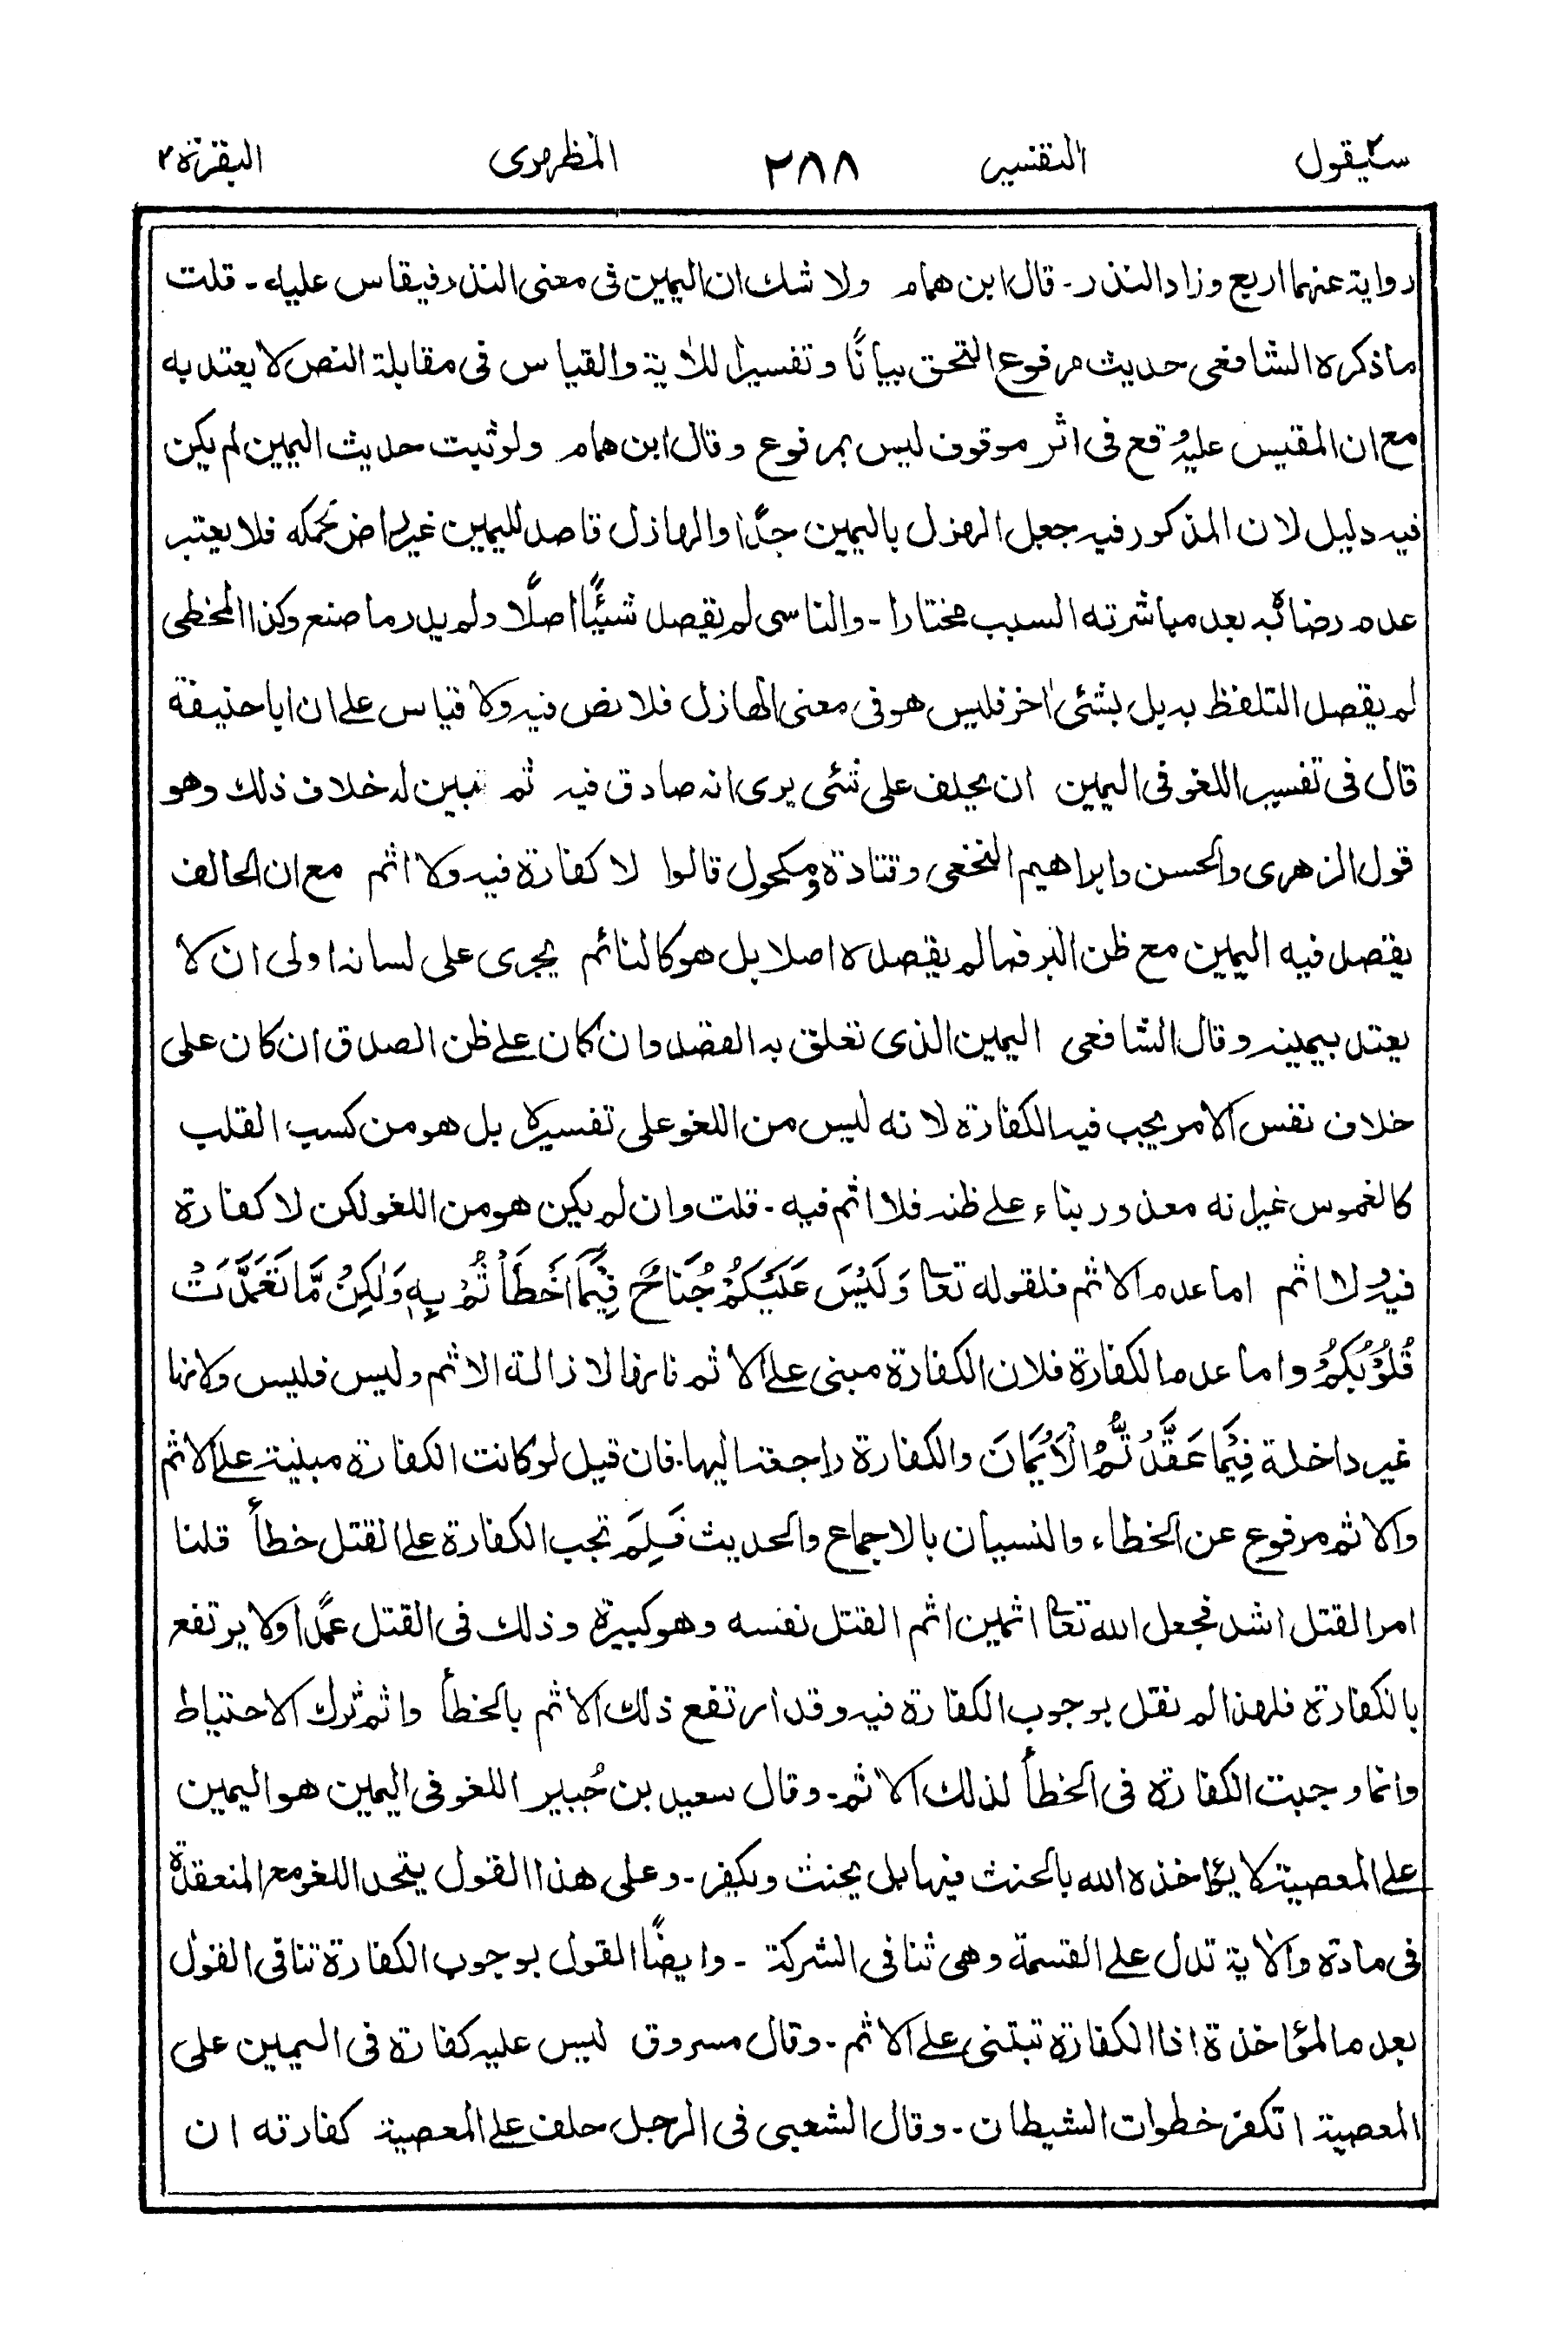 سيقول ٢ التفسير ٢٨٨ المظهرى البقرة ٢
رواية عنهما اربع وزاد النذر۔ قال ابن همام ولا شك ان اليمين فى معنى النذر فيقاس عليه۔ قلت
ما ذكره الشافعى حديث مرفوع التحق بيانًا وتفسيرا للاٰية والقياس فى مقابلة النص لا يعتد به
مع ان المقيس عليه وقع فى اثر موقوف ليس بمرفوع وقال ابن همام ولو ثبت حديث اليمين لم يكن
فيه دليل لان المذكور فيه جعل الهزل باليمين جدًّا والهازل قاصد لليمين غير راض بحكمه فلا يعتبر
عدم رضائه به بعد مباشرته السبب مختارا۔ والناسى لم يقصد شيئًا اصلًا ولم يدر ما صنع وكذا المخطى
لم يقصد التلفظ به بل بشئى اٰخر فليس هو فى معنى الهازل فلا نص فيه ولا قياس على ان ابا حنيفة
قال فى تفسير اللغو فى اليمين ان يحلف على شئى يرى انه صادق فيه ثم تبين له خلاف ذلك وهو
قول الزهرى والحسن وابراهيم النخعى وقتادة ومكحول قالوا لا كفارة فيه ولا اثم مع ان الحالف
يقصد فيه اليمين مع ظن البر فما لم يقصده اصلا بل هو كالنائم يجرى على لسانه اولى ان لا
يعتد بيمينه وقال الشافعى اليمين الذى تعلق به القصد وان كان على ظن الصدق ان كان على
خلاف نفس الامر يجب فيه الكفارة لانه ليس من اللغو على تفسيره بل هو من كسب القلب
كالغموس غير انه معذور بناء على ظنه فلا اثم فيه۔ قلت وان لم يكن هو من اللغو لكن لا كفارة
فيه ولا اثم اما عدم الاثم فلقوله تعالى وَلَيْسَ عَلَيْكُمْ جُنَاحٌ فِيْمَا اَخْطَأْتُمْ بِهٖ وَلٰكِنْ مَّا تَعَمَّدَتْ
قُلُوْبُكُمْ واما عدم الكفارة فلان الكفارة مبنى على الاثم فانها لازالة الاثم وليس فليس ولانها
غير داخلة فِيْمَا عَقَّدْتُّمُ الْاَيْمَانَ والكفارة راجعة اليها۔ فان قيل لو كانت الكفارة مبنية على الاثم
والاثم مرفوع عن الخطاء والنسيان بالاجماع والحديث فَلِمَ تجب الكفارة على القتل خطأً قلنا
امر القتل اشد فجعل الله تعالى اثمين اثم القتل نفسه وهو كبيرة وذلك فى القتل عمدًا ولا يرتفع
بالكفارة فلهذا لم نقل بوجوب الكفارة فيه وقد ارتفع ذلك الاثم بالخطأ واثم ترك الاحتياط
وانما وجبت الكفارة فى الخطأ لذلك الاثم۔ وقال سعيد بن جُبير اللغو فى اليمين هو اليمين
على المعصية لا يؤاخذه الله بالحنث فيها بل يحنث ويكفر۔ وعلى هذا القول يتحد اللغو مع المنعقدة
فى مادة والاٰية تدل على القسمة وهى تنافى الشركة ۔ وايضًا القول بوجوب الكفارة تنافى القول
بعدم المؤاخذة اذا الكفارة تبتنى على الاثم۔ وقال مسروق ليس عليه كفارة فى اليمين على
المعصية اتكفر خطوات الشيطان۔ وقال الشعبى فى الرجل حلف على المعصية كفارته ان